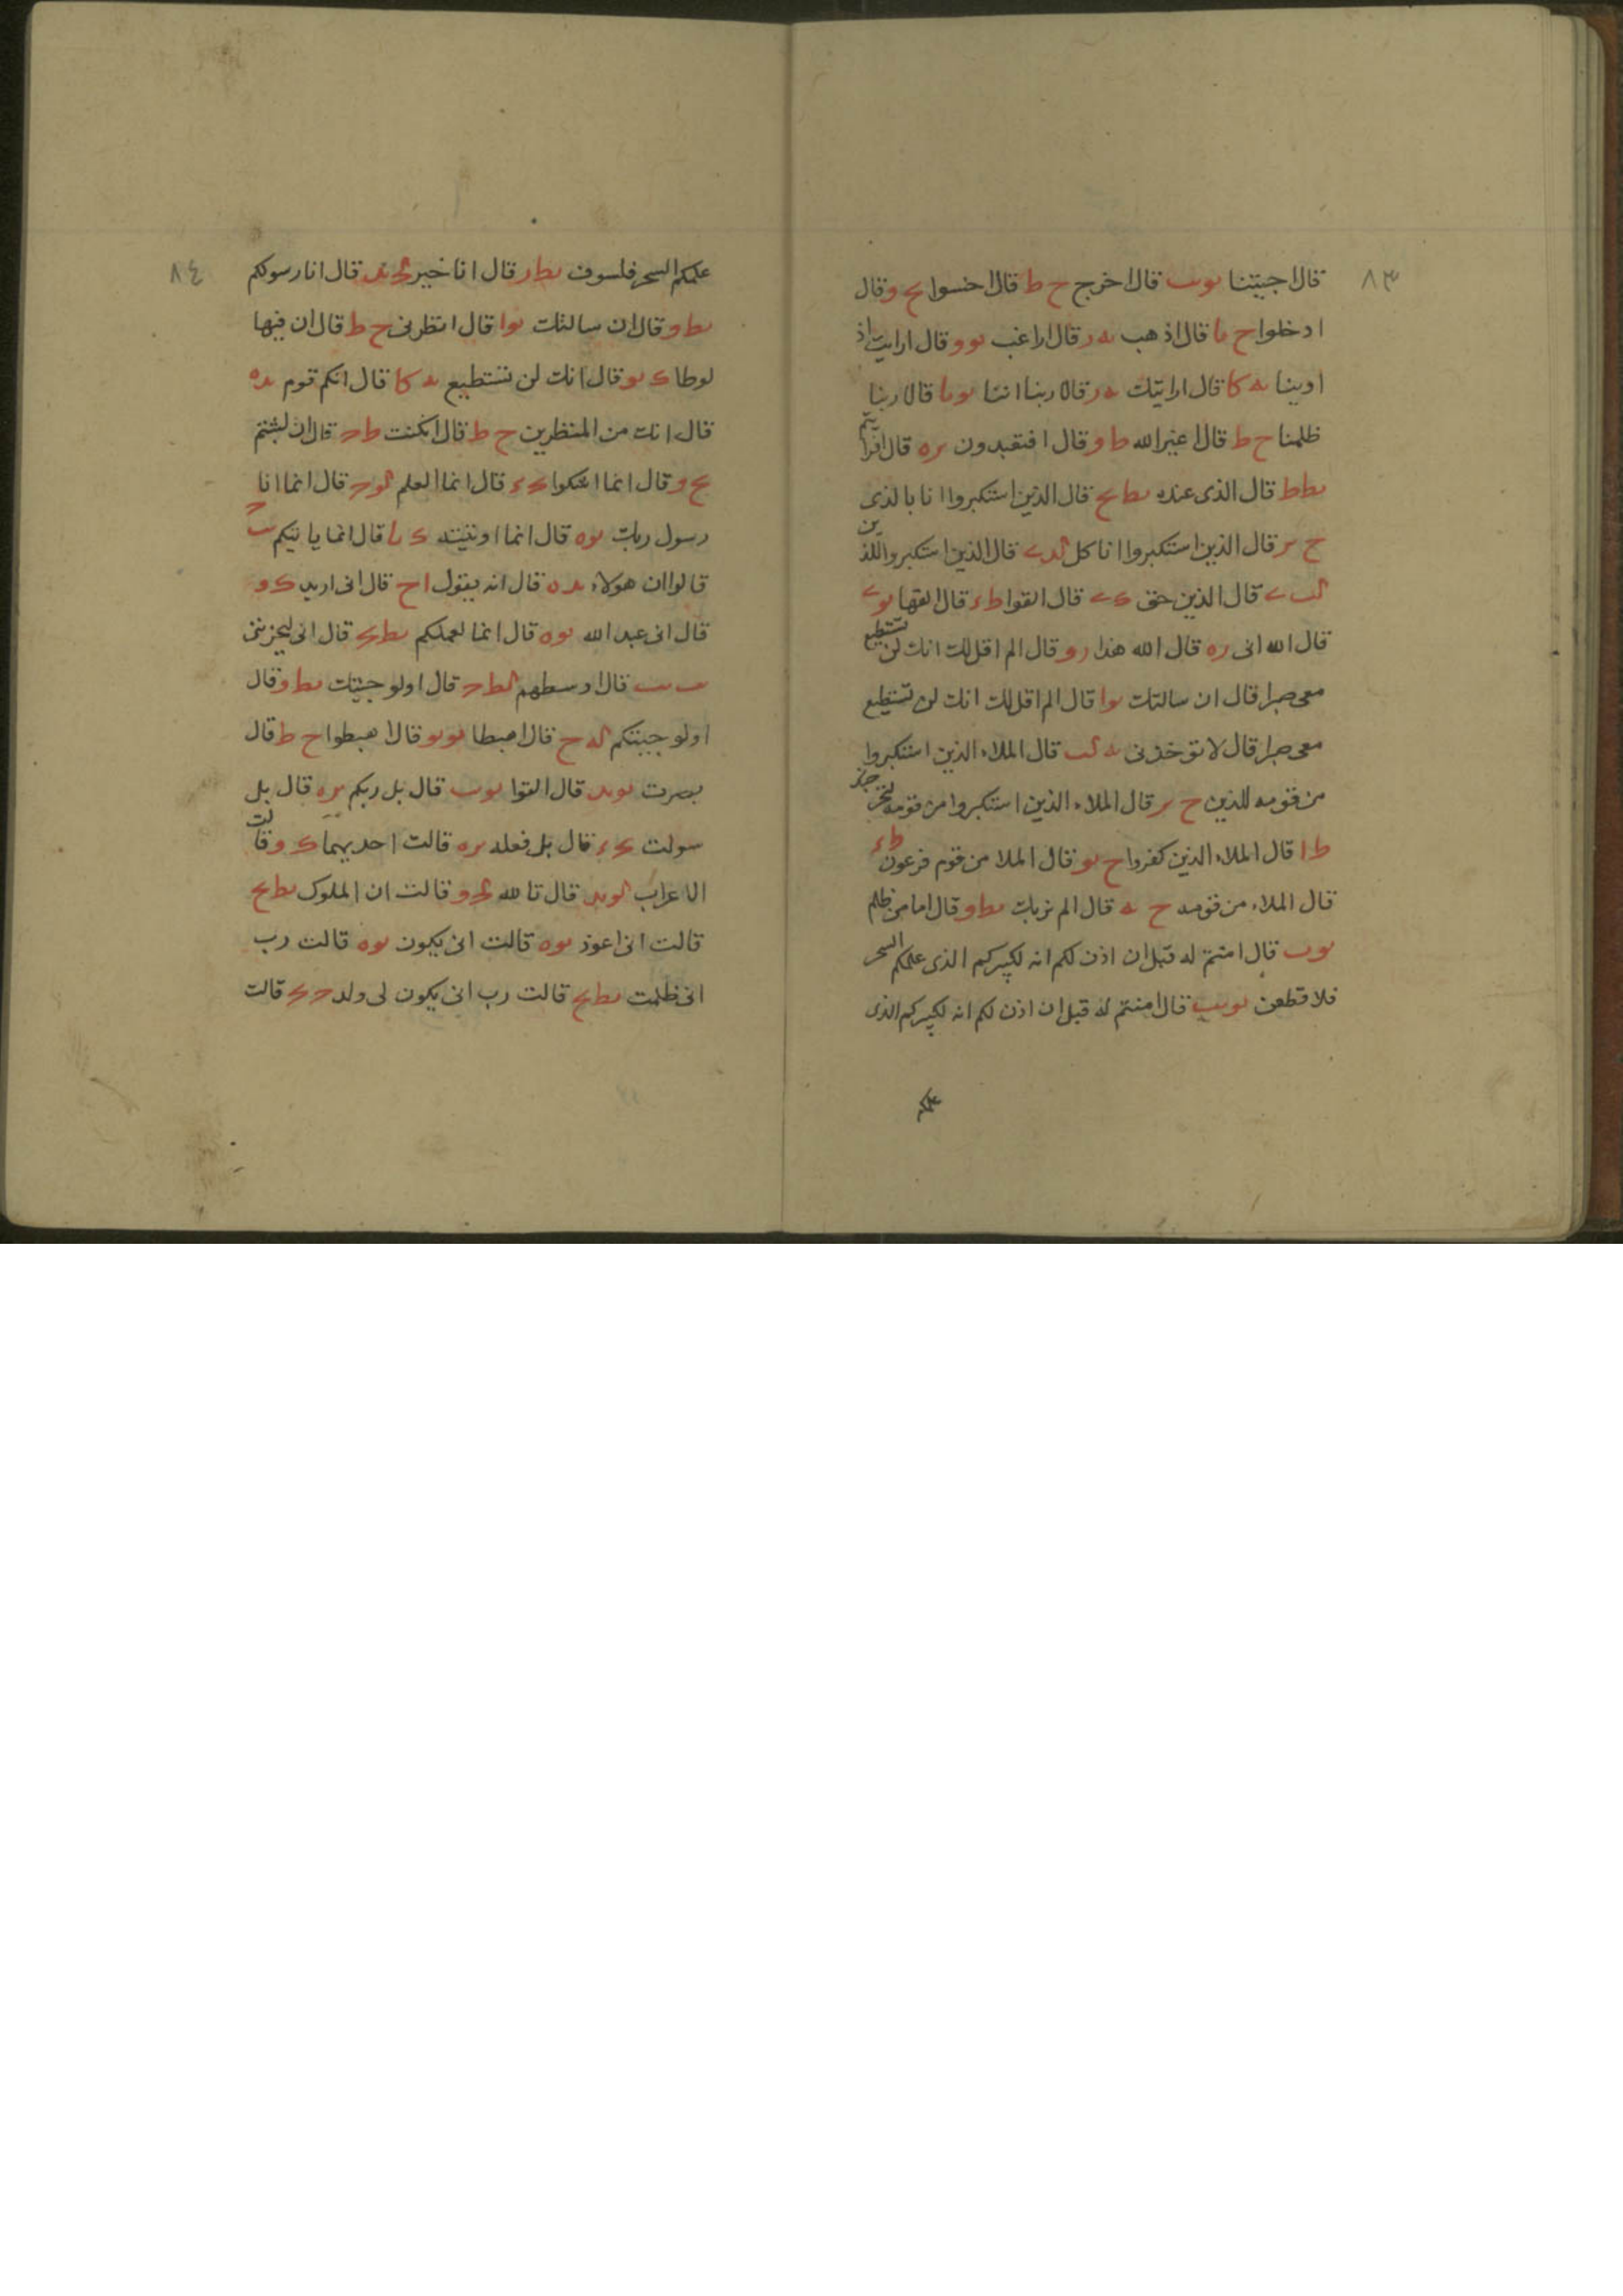 ٨٣
قال اجيتنا يوىب قال اخرج ح ط قال اخسوا ىح وقال
ادخلوا ح ىا قال اذهب ىه ر قال اراغب ىو و قال ارايت اذ
اوينا ىه كا قال ارايتك ىه ر قالا ربنا اننا ىو ىا قالا ربنا
ظلمنا ح ط قال اغير الله ط و قال افتعبدون ىره قال افرايتم
ىط ط قال الذى عنده ىط ىح قال الذين استكبروا انا بالذى
ح ىر قال الذين استكبروا انا كل قال الذين استكبروا للذين
قال الذين حق قال القوا ط ء قال القها
قال الله انى ره قال الله هذا ر و قال الم اقل لك انك لن تستطيع
معى صبرا قال ان سالتك ىوا قال الم اقل لك انك لن تستطيع
معى صبرا قال لا تؤخذنى ىه لب قال الملاء الذين استكبروا
من قومه للذين ح ىر قال الملاء الذين استكبروا من قومه لنخرجنك
ط ا قال الملاء الذين كفروا ح ىو قال الملا من قوم فرعون ط ء
قال الملاء من قومه ح ىه قال الم نربك ىط و قال اما من ظلم
ىو ب قال امنتم له قبل ان اذن لكم انه لكبيركم الذى علمكم السحر
فلاقطعن ىو ىب قال امنتم له قبل ان اذن لكم انه لكبيركم الذى
٨٤
علمكم السحر فلسوف ىط ر قال انا خير قال انا رسولكم
ىط و قال ان سالتك ىوا قال انظرنى ح ط قال ان فيها
لوطا ك ىو قال انك لن تستطيع ىه كا قال انكم قوم ىده
قال انك من المنظرين ح ط قال ان كنت ط ح قال ان لبثتم
ىح و قال انما اشكوا قال انما العلم قال انما انا
رسول ربك ىوه قال انما اوتيته ك ىا قال انما ياتيكم
قالوا ان هولاء ىد ه قال انه يقول ا ح قال انى اريد ك و
قال انى عبد الله ىوه قال انما لعملكم قال انى ليحزننى
قال اوسطهم لط ح قال اولو جيتك ىط و قال
اولو جيتكم له ح قال اهبطا ىو ىو قال اهبطوا ح ط قال
بصرت ىو ىد قال القوا ىو ىب قال بل ربكم ىره قال بل
سولت قال بل فعله ىره قالت احديهما ك و قالت
الاعراب قال تالله قالت ان الملوك ىط ىح
قالت انى اعوذ ىوه قالت انى يكون ىوه قالت رب
انى ظلمت ىط ىح قالت رب انى يكون لى ولد قالت